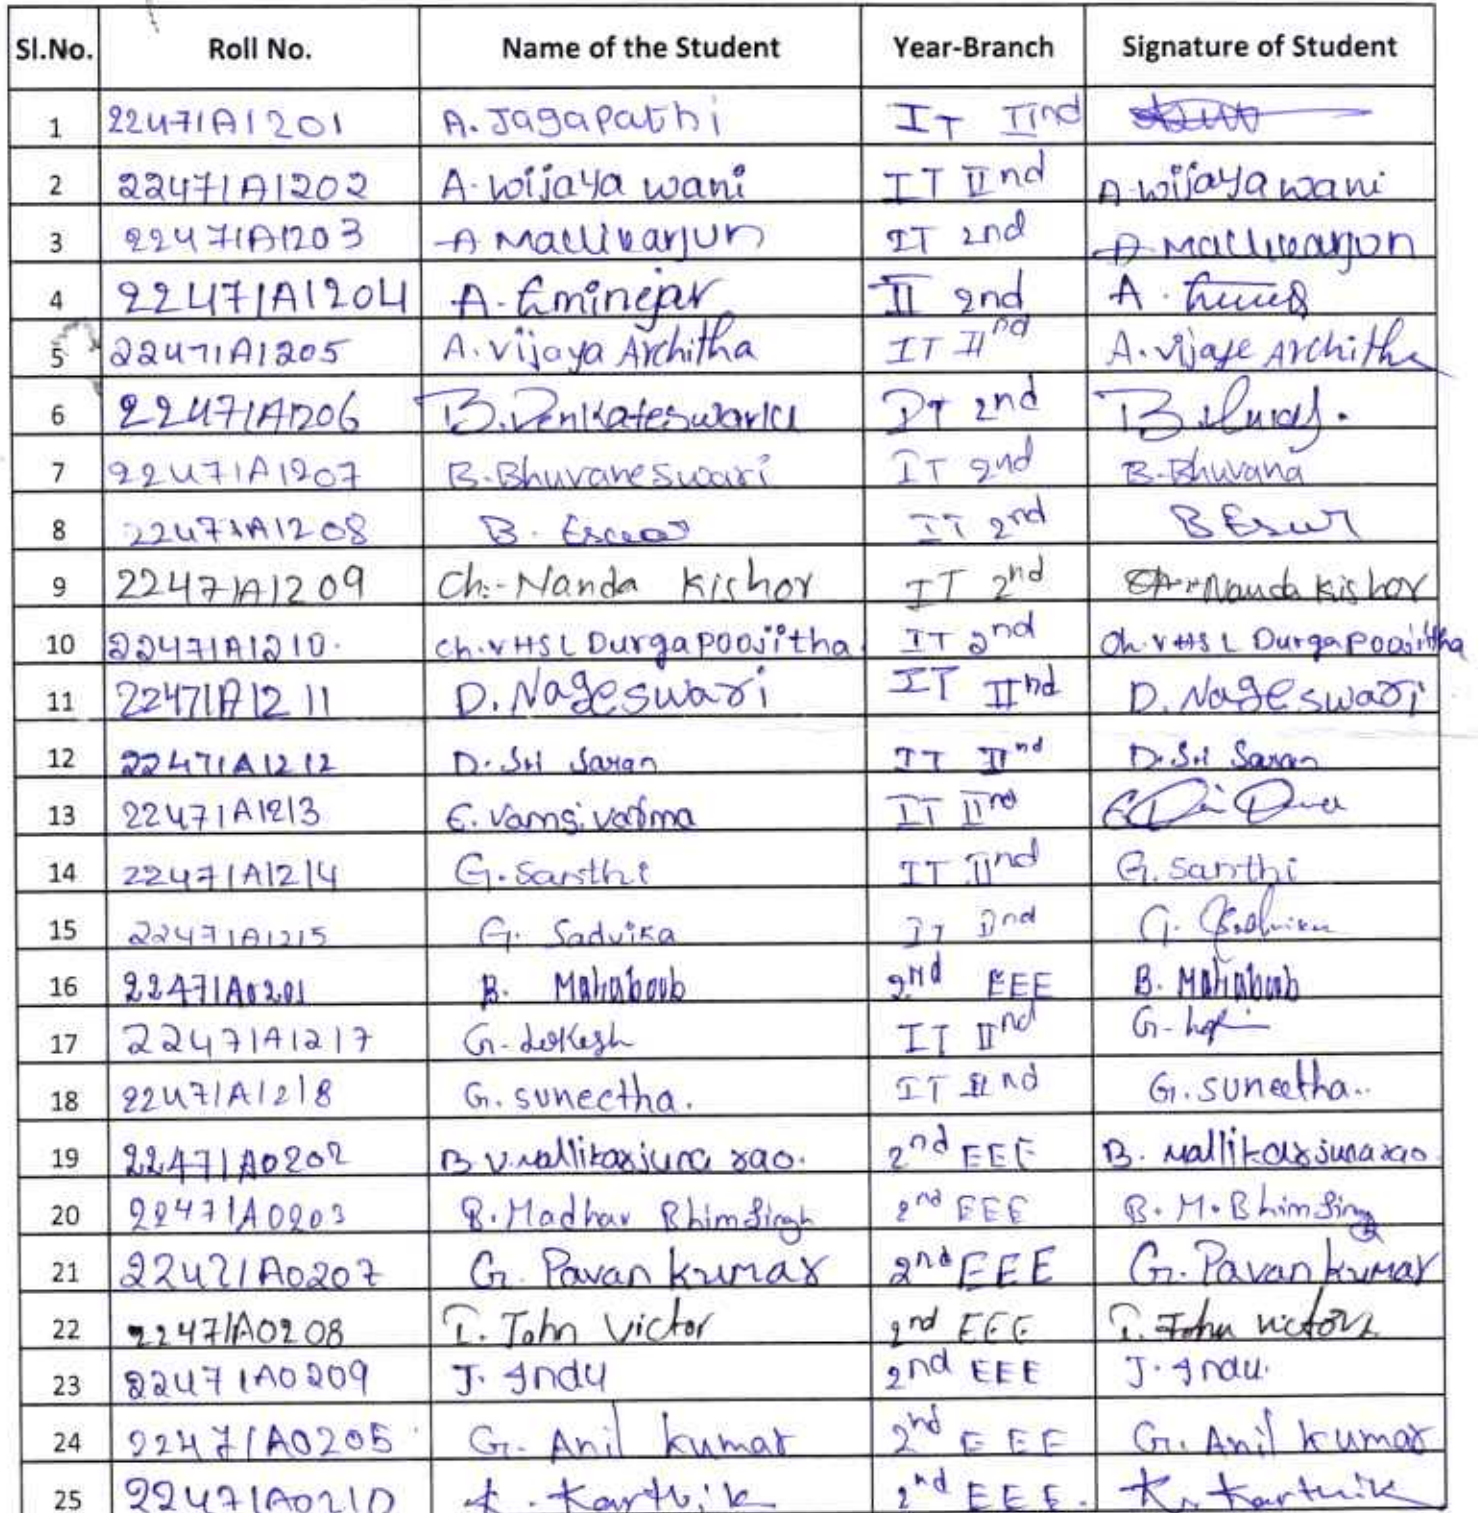 Sl.No. Roll No. Name of the Student Year-Branch Signature of Student
1 22471A1201 A. Jagapathi IT IInd
2 22471A1202 A. wijaya wani IT IInd A. wijaya wani
3 22471A1203 A Mallikarjun IT 2nd A. Mallikarjun
4 22471A1204 A. II 2nd A.
5 22471A1205 A. vijaya Architha IT IInd A. vijaye Architha
6 22471A1206 B. Venkateswarlu IT 2nd B
7 22471A1207 B. Bhuvaneswari IT 2nd B. Bhuvana
8 22471A1208 B. IT 2nd B Eswr
9 22471A1209 Ch:- Nanda Kishor IT 2nd Nanda Kishor
10 22471A1210. Ch. V H S L Durga Poojitha IT 2nd Ch. V H S L Durga Poojitha
11 22471A1211 D. Nageswari IT IInd D. Nageswari
12 22471A1212 D. Sri Saran IT IInd D. Sri Saran
13 22471A1213 E. Vamsi varma IT IInd
14 22471A1214 G. Santhi IT IInd G. Santhi
15 22471A1215 G. Sadvika IT 2nd G.
16 22471A0201 B. Mahaboob 2nd EEE B. Mahaboob
17 22471A1217 G. Lokesh IT IInd G.
18 22471A1218 G. suneetha. IT IInd G. suneetha..
19 22471A0202 B V. Mallikarjuna rao. 2nd EEE B. Mallikarjuna rao.
20 22471A0203 B. Madhav Bhim Singh 2nd EEE B. M. Bhim Sing
21 22471A0207 G. Pavan kumar 2nd EEE G. Pavan kumar
22 22471A0208 I. John Victor 2nd EEE I. John victor
23 22471A0209 J. Indu 2nd EEE J. Indu.
24 22471A0205 G. Anil kumar 2nd EEE G. Anil kumar
25 22471A0210 K. Karthik 2nd EEE. K. Karthik